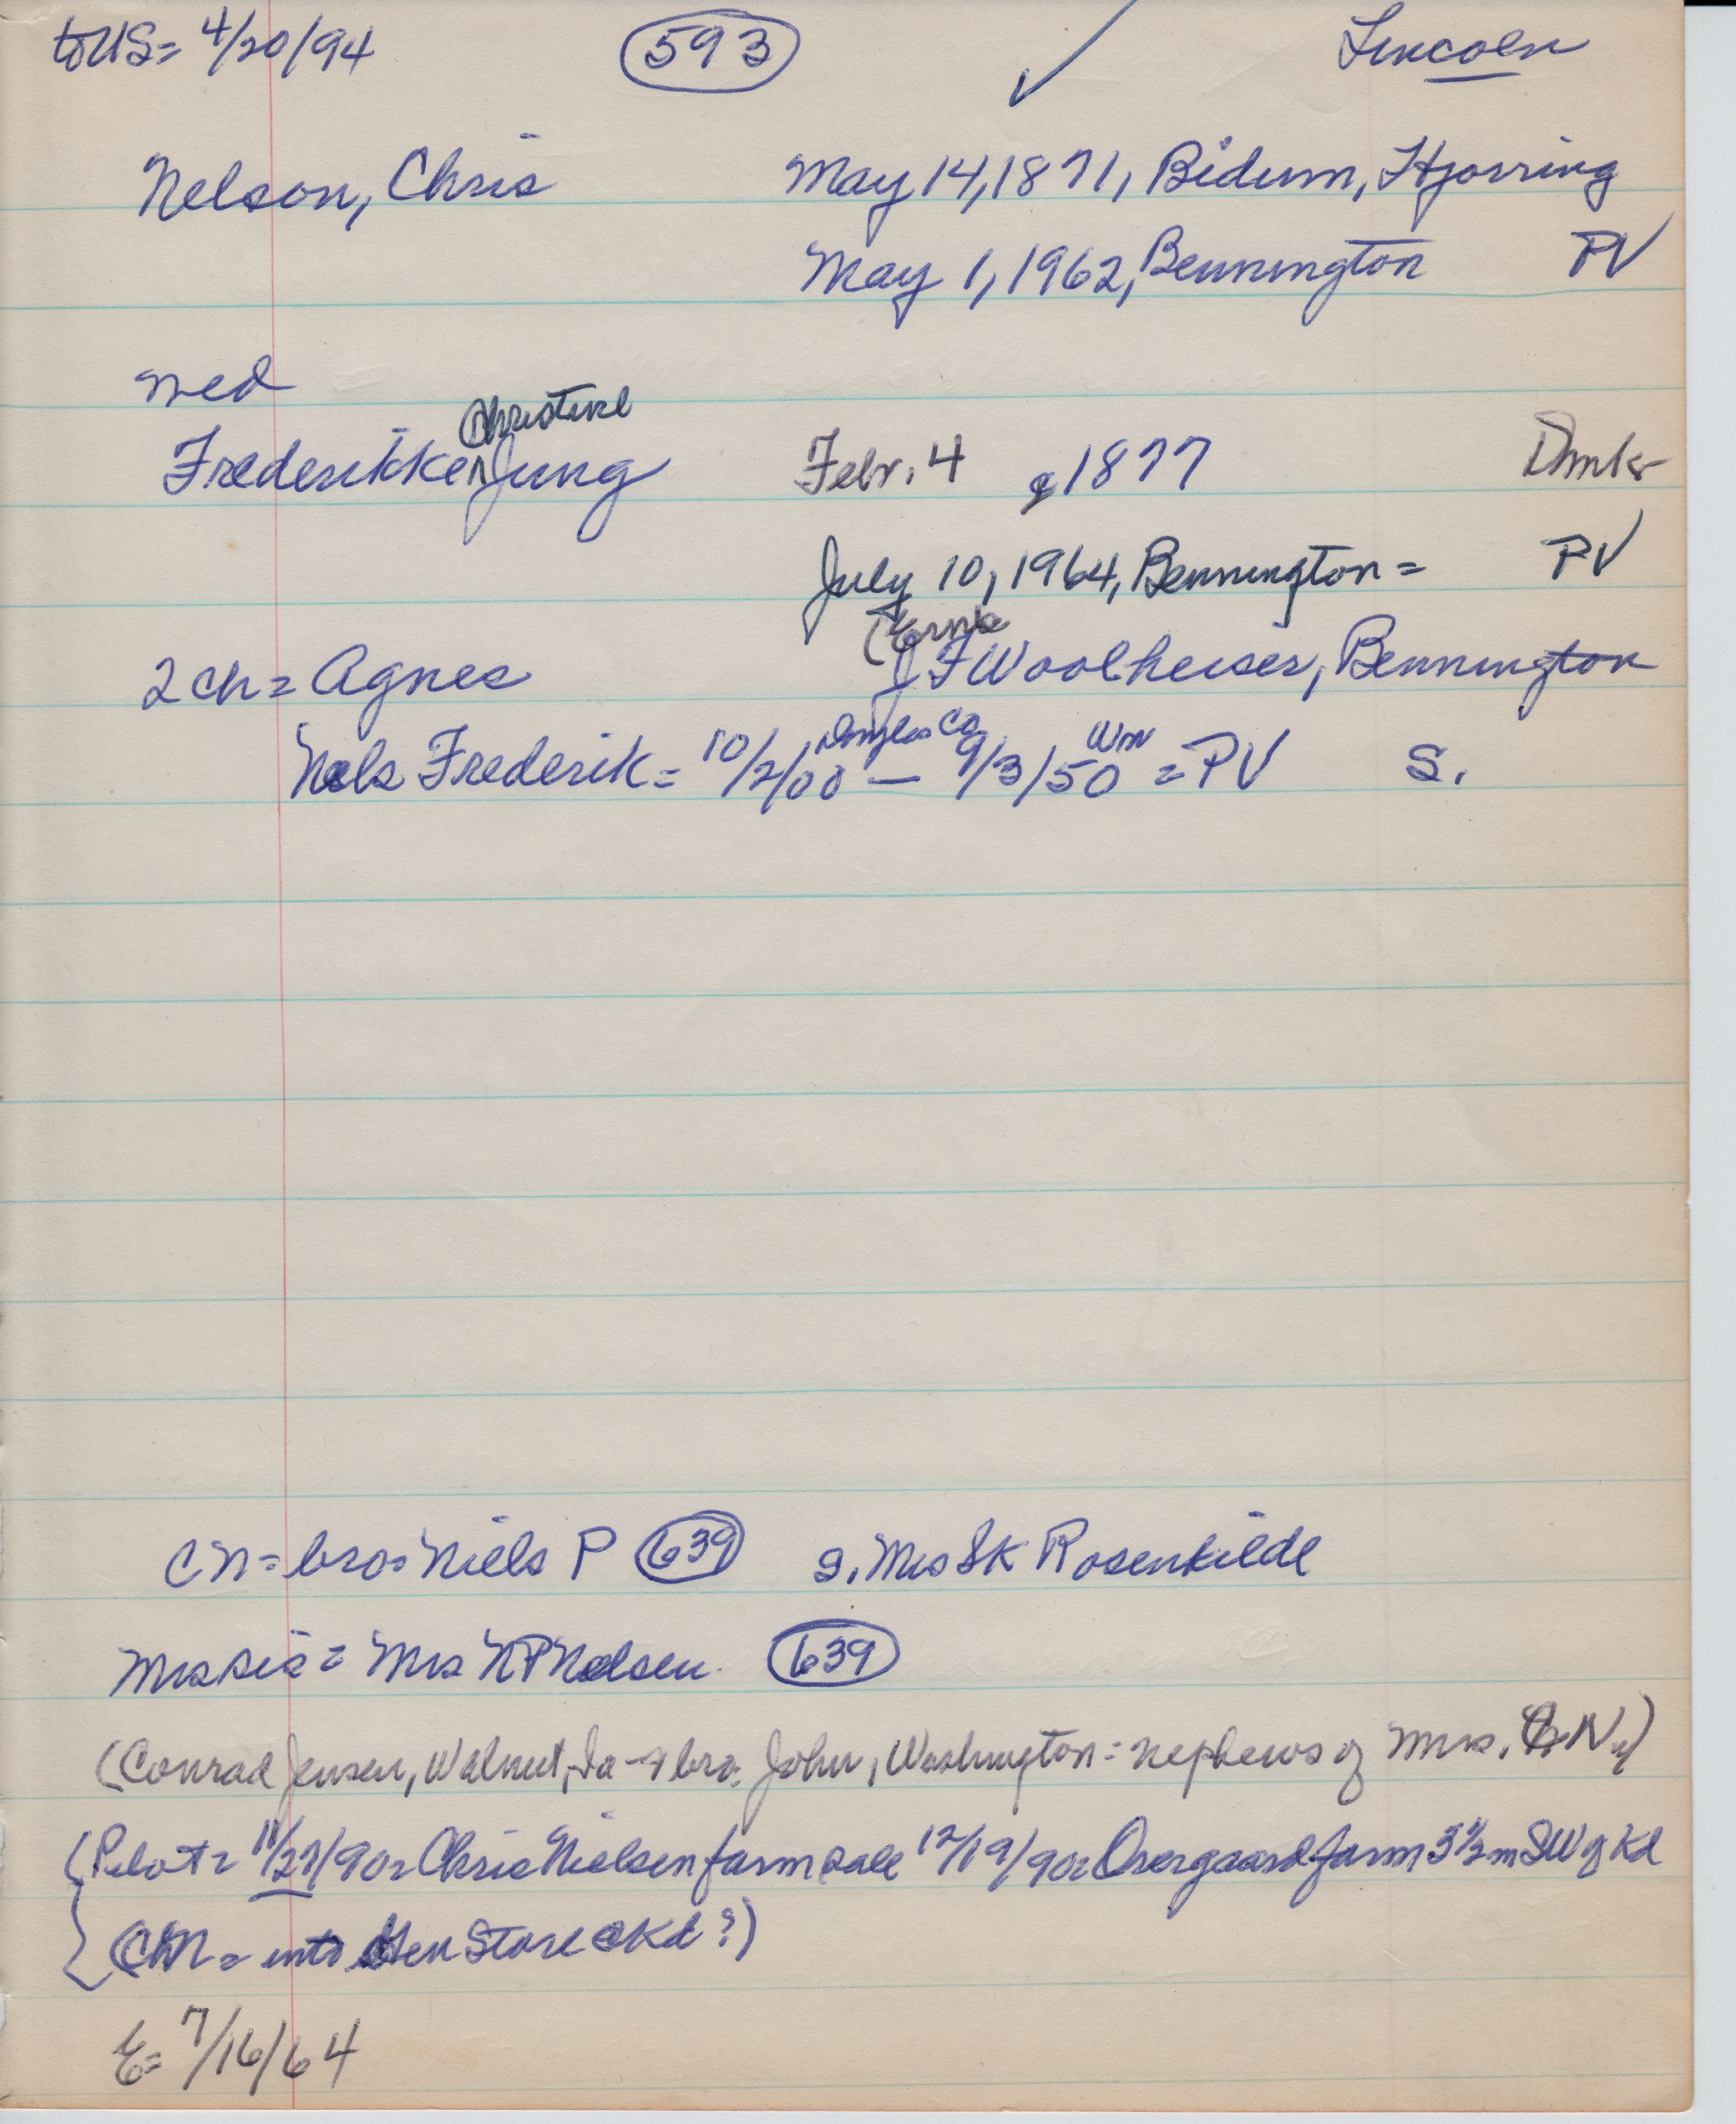 to US= 4/20/94 593 ✓ Lincoln
Nelson, Chris May 14, 1871, Bidum, Hjorring
May 1, 1962, Bennington PV
med
Christine
Frederikke ^ Jung Febr. 4 , 1877 Dmk
July 10, 1964, Bennington = PV
(Ernie
2 ch = Agnes J F Woolheiser, Bennington
Nels Frederik = 10/2/00 Douglas Co — 9/3/50 Wn = PV S.
CN = bro = Niels P 639 s. Mrs SK Rosenkilde
Mrs sis = Mrs NP Nelsen. 639
(Conrad Jensen, Walnut, Ia - + bro. John, Washington = nephews of Mrs. CN)
(Pilot = 11/27/90 = Chris Nielsen farm sale 12/19/90 = Overgaard farm 3 1/2 m SW of Kd
CN = into Gen Store Kd?)
E= 7/16/64